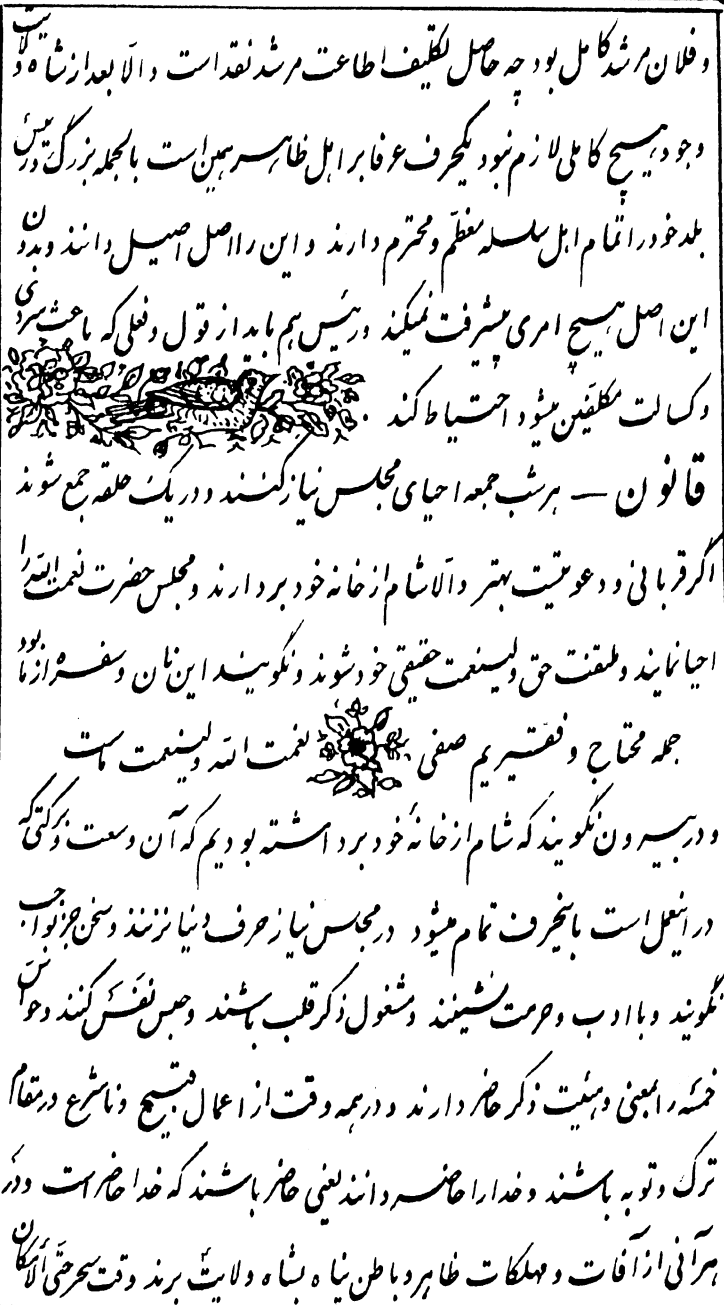 و فلان مرشد کامل بود چه حاصل تکلیف اطاعت مرشد نقد است و الّا بعد از شاه ولایت
وجود هیچ کاملی لازم نبود یکحرف عرفا بر اهل ظاهر همین است بالجمله بزرگ و رئیس
بلد خود را تمام اهل سلسله معظّم و محترم دارند و این را اصل اصیل دانند و بدون
این اصل هیچ امری پیشرفت نمیکند و رئیس هم باید از قول و فعلی که باعث سردی
و کسالت مکلّفین میشود احتیاط کند
قانون — هر شب جمعه احیای مجلس نیاز کنند و در یک حلقه جمع شوند
اگر قربانی و دعوتیست بهتر و الّا شام از خانه خود بردارند و مجلس حضرت نعمت الله را
احیا نمایند و ملتفت حق ولینعمت حقیقی خود شوند و نگویند این نان و سفره از ما بود
جمله محتاج و فقیریم صفی نعمت الله ولینعمت ماست
و در بیرون نگویند که شام از خانهٔ خود برداشته بودیم که آن وسعت و برکتی که
در اینعمل است باینحرف تمام میشود در مجلس نیاز حرف دنیا نزنند و سخن جز بواجب
نگویند و با ادب و حرمت نشینند و مشغول ذکر قلب باشند و حبس نفَس کنند و حواس
خمسه را بمعنی و هیئت ذکر حاضر دارند و در همه وقت از اعمال قبیح و نامشرع در مقام
ترک و توبه باشند و خدا را حاضر دانند یعنی حاضر باشند که خدا حاضر است و در
هر آنی از آفات و مهلکات ظاهر و باطن پناه بشاه ولایت برند وقت سحر حتّی الامکان